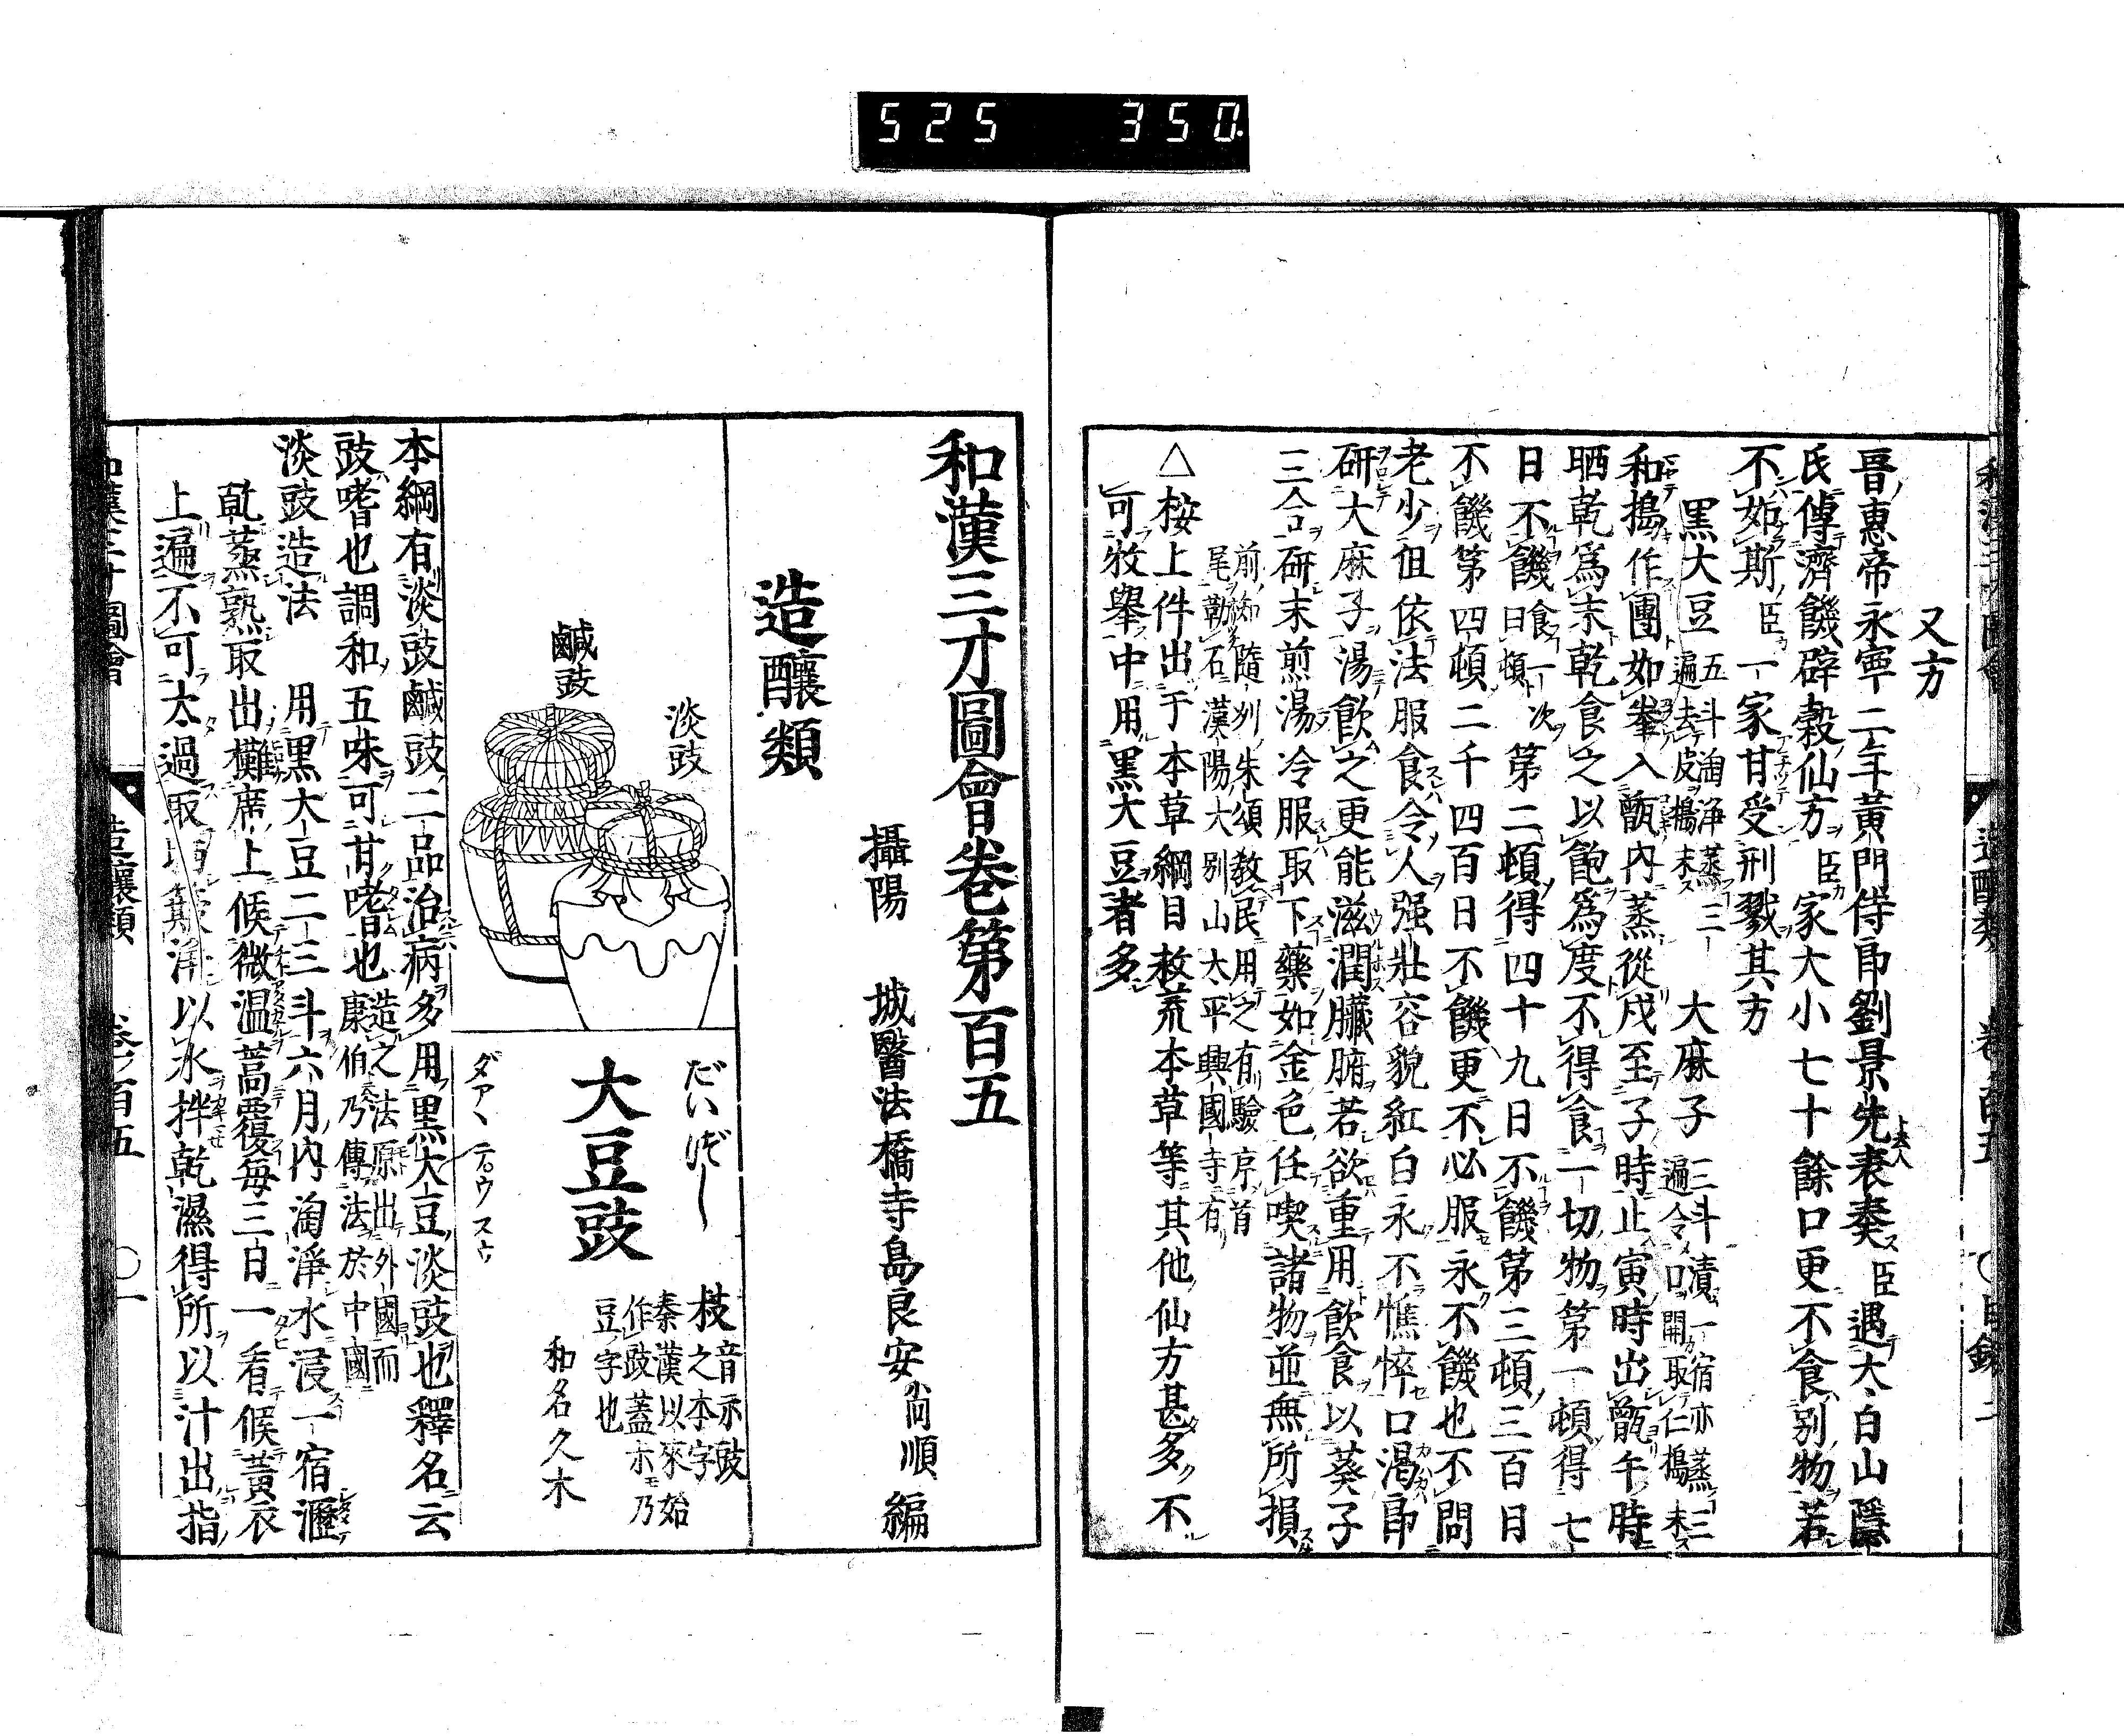 525 350.
又方
晋惠帝永寧二年黃門侍郎劉景先表奏臣遇太白山隱
氏傳濟饑辟穀仙方臣家大小七十餘口更不食別物若
不如斯臣一家甘受刑戮其方
黑大豆五斗淘淨蒸三遍去皮搗末 大麻子三斗漬一宿亦蒸三遍令口開取仁搗末
和搗作團如拳入甑內蒸從戌至子時止寅時出甑午時
晒乾爲末乾食之以飽爲度不得食一切物第一頓得七
日不饑食一次曰一頓第二頓得四十九日不饑第三頓三百日
不饑第四頓二千四百日不饑更不必服永不饑也不問
老少但依法服食令人强壯容貌紅白永不憔悴口渴即
研大麻子湯飲之更能滋潤臟腑若欲重用飲食以葵子
三合研末煎湯冷服取下藥如金色任喫諸物並無所損
前知隨州朱頌教民用之有驗京首
尾勒石漢陽大別山太平興國寺有
△桉上件出于本草綱目救荒本草等其他仙方甚多不
可枚舉中用黑大豆者多
和漢三才圖會卷第百五
攝陽 城醫法橋寺島良安尙順編
造釀類
鹹豉
淡豉
だいず
大豆豉
ダアヽ テ゜ウ スウ
枝音示豉
之本字
秦漢以來始
作豉蓋尗乃
豆字也
和名久木
本綱有淡豉鹹豉二品治病多用黑大豆淡豉也釋名云
豉嗜也調和五味可甘嗜也造之法原出外國而康伯乃傳法於中國
淡豉造法 用黑大豆二三斗六月內淘淨水浸一宿瀝
乾蒸熟取出攤席上候微溫蒿覆每三日一看候黃衣
上遍不可太過取晒簸淨以水拌乾濕得所以汁出指
造釀類 卷百五 〇一